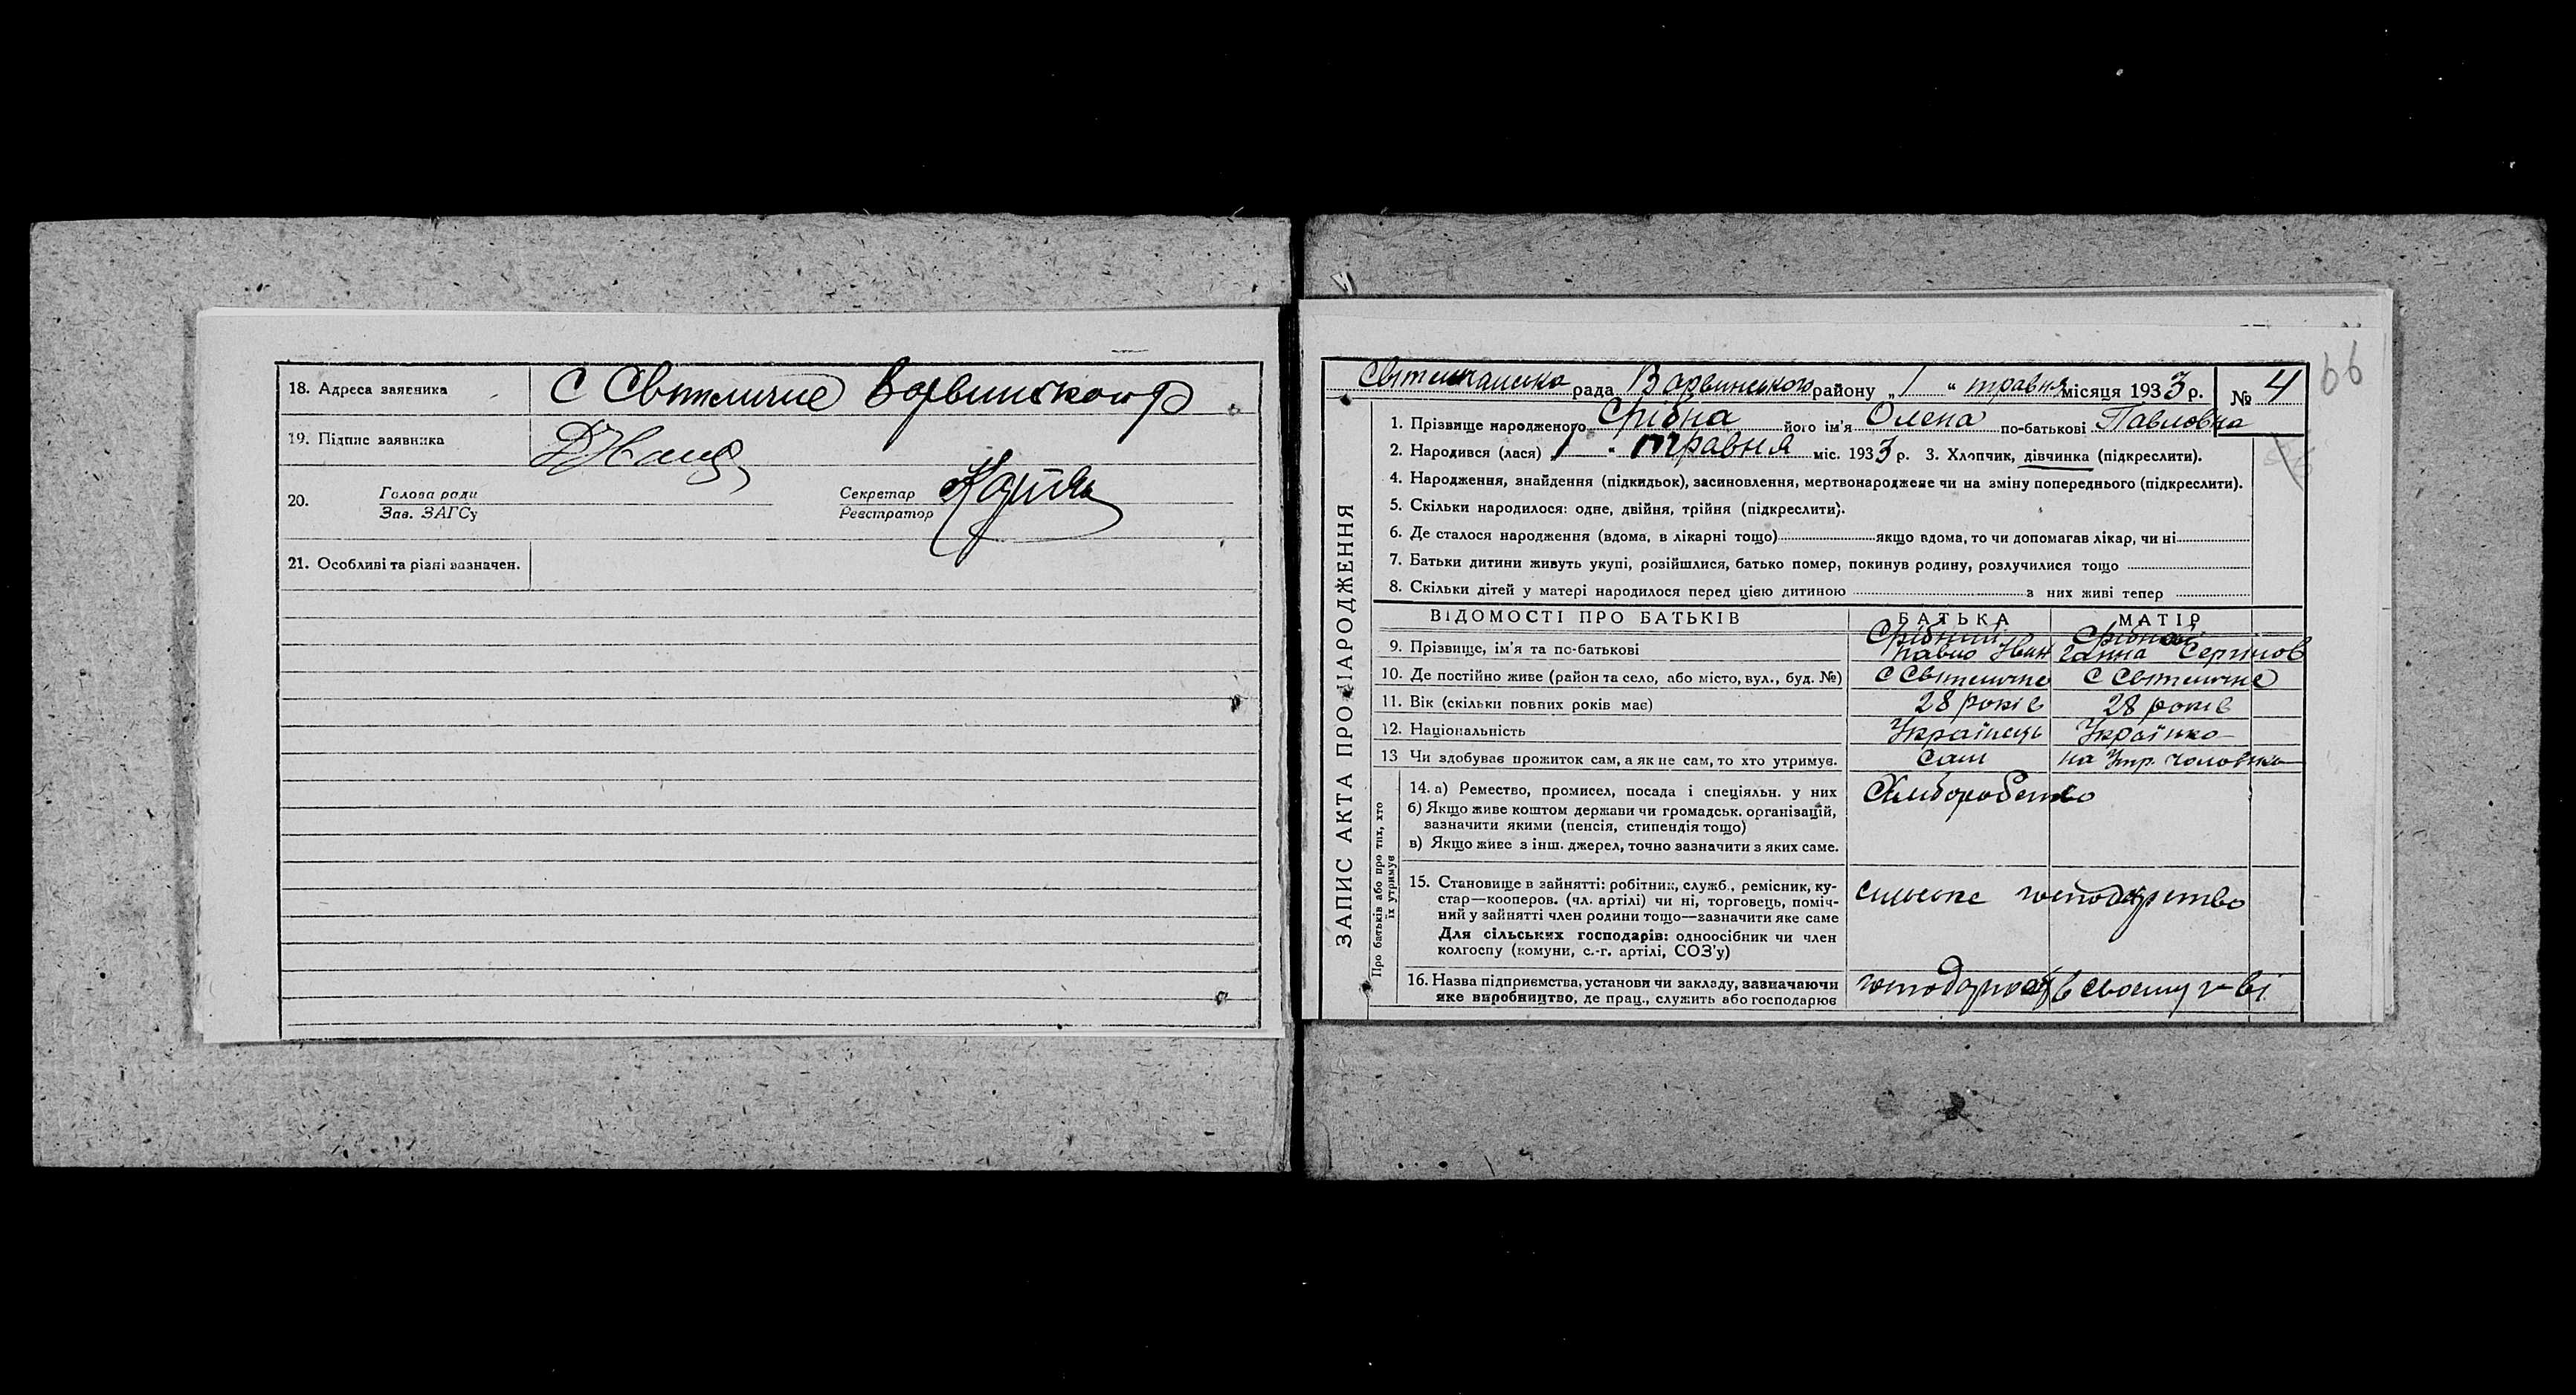 18. Адреса заявника С Світличне Варвинского р
19. Підпис заявника
20. Голова ради Секретар
Зав. ЗАГСу Реєстратор
21. Особливі та різні зазначен.
66
Світличанська рада Варвинського району „ 1 “ травня місяця 1933 р. № 4
1. Прізвище народженого Срібна його ім'я Олена по-батькові Павловна
2. Народився (лася) 1 “ травня міс. 1933 р. 3. Хлопчик, дівчинка (підкреслити).
4. Народження, знайдення (підкидьок), засиновлення, мертвонароджене чи на зміну попереднього (підкреслити).
5. Скільки народилося: одне, двійня, трійня (підкреслити).
6. Де сталося народження (вдома, в лікарні тощо) якщо вдома, то чи допомагав лікар, чи ні
7. Батьки дитини живуть укупі, розійшлися, батько помер, покинув родину, розлучилися тощо
8. Скільки дітей у матері народилося перед цією дитиною з них живі тепер
ЗАПИС АКТА ПРО НАРОДЖЕННЯ
ВІДОМОСТІ ПРО БАТЬКІВ БАТЬКА МАТІР
9. Прізвище, ім'я та по-батькові Срібний Павло Іван Срібна Ганна
10. Де постійно живе (район та село, або місто, вул., буд. №) С Світличне С Світличне
11. Вік (скільки повних років має) 28 років 28 років
12. Національність Українець Українка
13 Чи здобуває прожиток сам, а як не сам, то хто утримує. Сам на Утр. чоловіка
Про батьків або про тих, хто
їх утримує
14. а) Ремество, промисел, посада і спеціяльн. у них
б) Якщо живе коштом держави чи громадськ. організацій,
зазначити якими (пенсія, стипендія тощо)
в) Якщо живе з інш. джерел, точно зазначити з яких саме.
15. Становище в зайнятті: робітник, служб., ремісник, ку-
стар—кооперов. (чл. артілі) чи ні, торговець, поміч-
ний у зайнятті член родини тощо—зазначити яке саме
сильське господарство
Для сільських господарів: одноосібник чи член
колгоспу (комуни, с.-г. артілі, СОЗ'у)
16. Назва підприємства, установи чи закладу, зазначаючи
яке виробництво, де прац., служить або господарює
в своєму г-ві